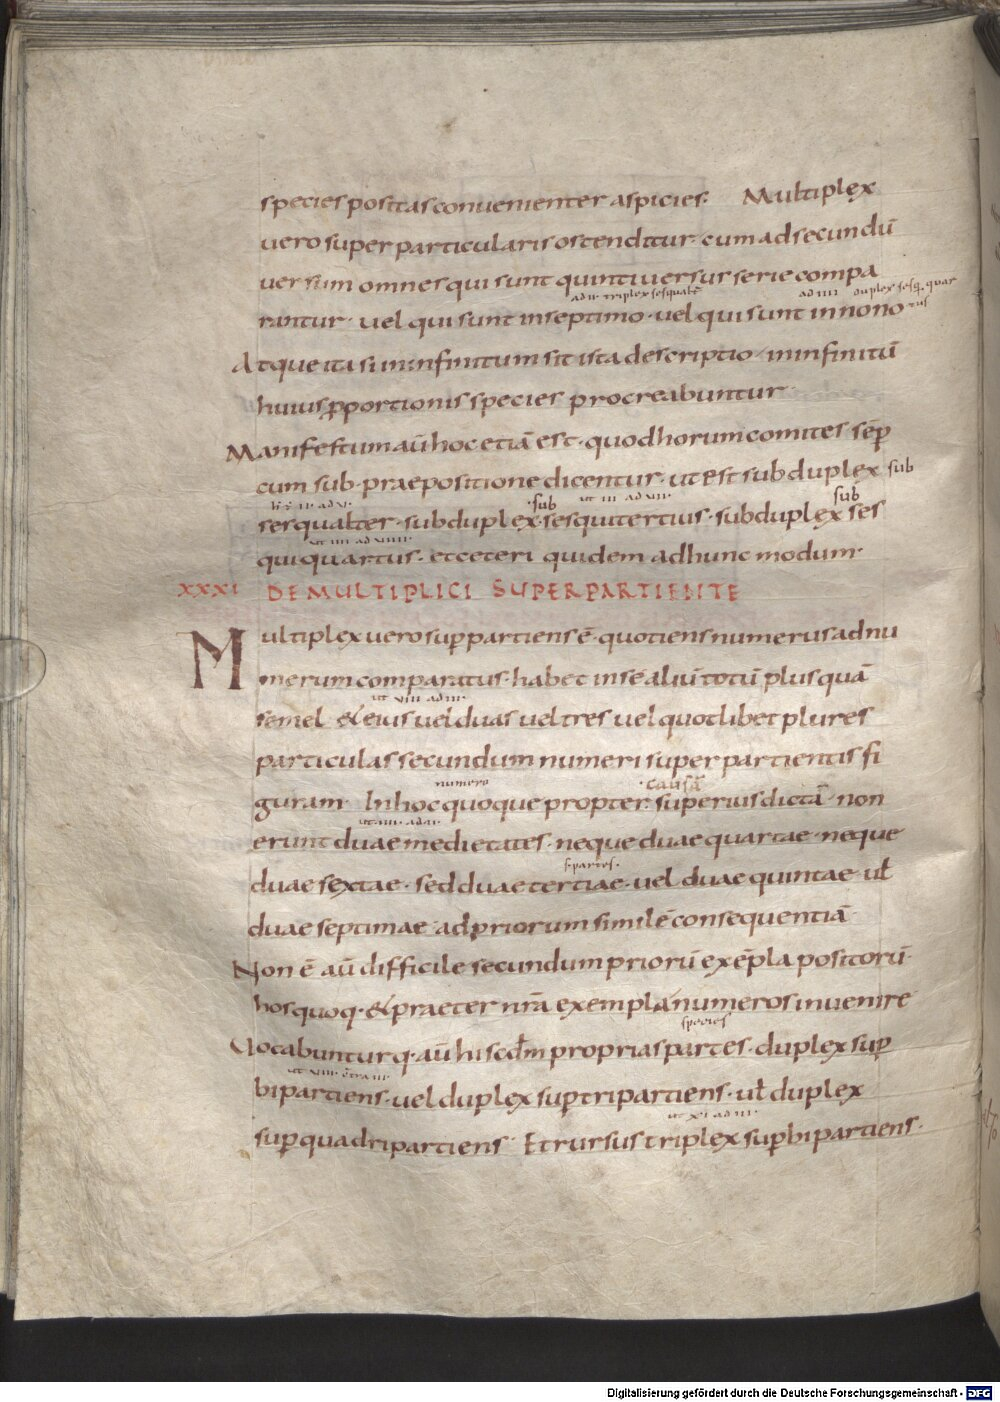 species positas conuenienter aspicies. Multiplex
uero superparticularis ostenditur. cum ad secundū
uersum omnes qui sunt quinti uersus serie compa
ad II triplex sesqualt̄ ad IIII duplex sesq. quar
rantur. uel qui sunt in septimo. uel qui sunt in nono tus
Atque ita si in infinitum sit ista descriptio. in infinitū
huius p̱portionis species procreabuntur.
Manifestum aū hoc etiā est. quod horum comites sēp
cum sub. praepositione dicentur. ut est subduplex sub
ut III ad VIII. sub
sesqualter. subduplex. sub sesquitertius. subduplex ses
ut IIII ad VIIII.
quiquartus. et ceteri quidem ad hunc modum.
XXXI DE MULTIPLICI SUPERPARTIENTE
Multiplex uero sup̱partiens ē. quotiens numerus ad nu
merum comparatus. habet in sē aliū totū plus quā
ut VIII ad III.
semel & eius uel duas uel tres uel quotlibet plures
particulas secundum numeri superpartientis fi
numero causā
guram. In hoc quoque propter superius dictā. non
erunt duae medietates. neque duae quartae. neque
s. partes.
duae sextae. sed duae tertiae. uel duae quintae. uł
duae septimae. ad priorum similē consequentiā.
Non ē aū difficile secundum priorū exēpla positorū.
hos quoq. & praeter nrā exempla numeros inuenire
species
Vocabuntur q. aū hi scđm proprias partes. duplex sup̱
bipartiens. uel duplex sup̱tripartiens. uł duplex
ut XI ad III.
sup̱quadripartiens. Et rursus triplex sup̱bipartiens.
Digitalisierung gefördert durch die Deutsche Forschungsgemeinschaft - DFG